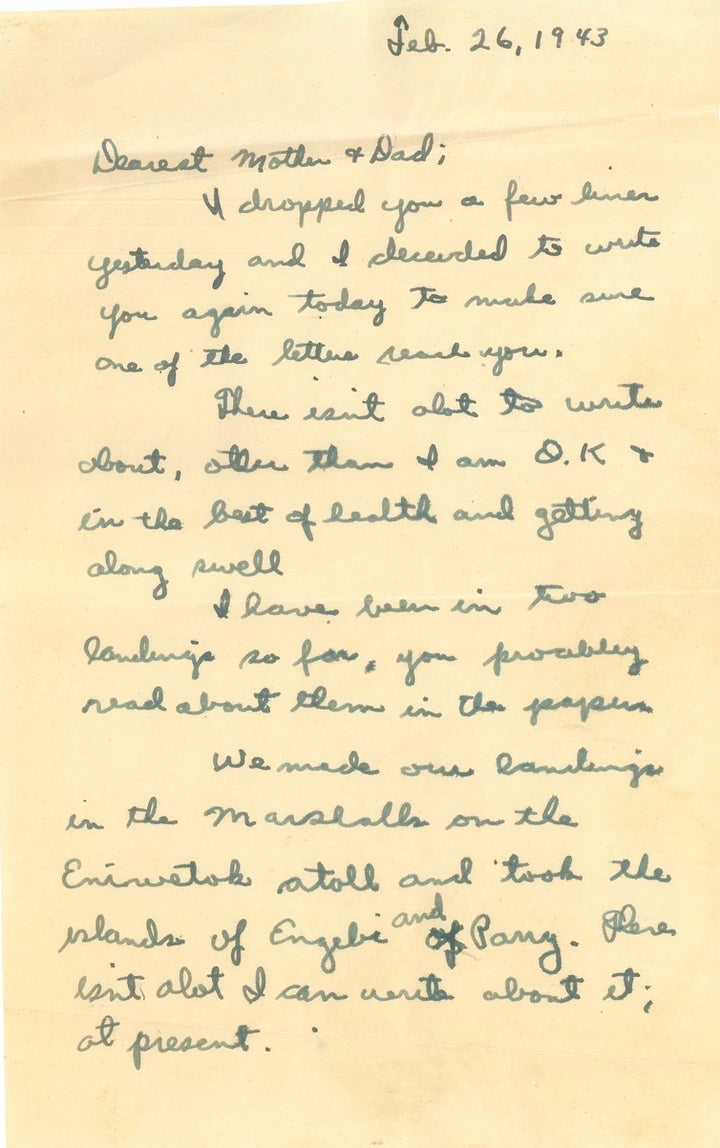 Feb. 26, 1943
Dearest Mother & Dad;
I dropped you a few lines
yesterday and I decided to write
you again today to make sure
one of the letters reach you.
There isn't alot to write
about, other than I am O.K &
in the best of health and getting
along swell
I have been in two
landings so far, you procabley
read about them in the papers
We made our landings
in the Marshalls on the
Eniwetok atoll and took the
islands of Engebi and Parry. There
isn't alot I can write about it;
at present.